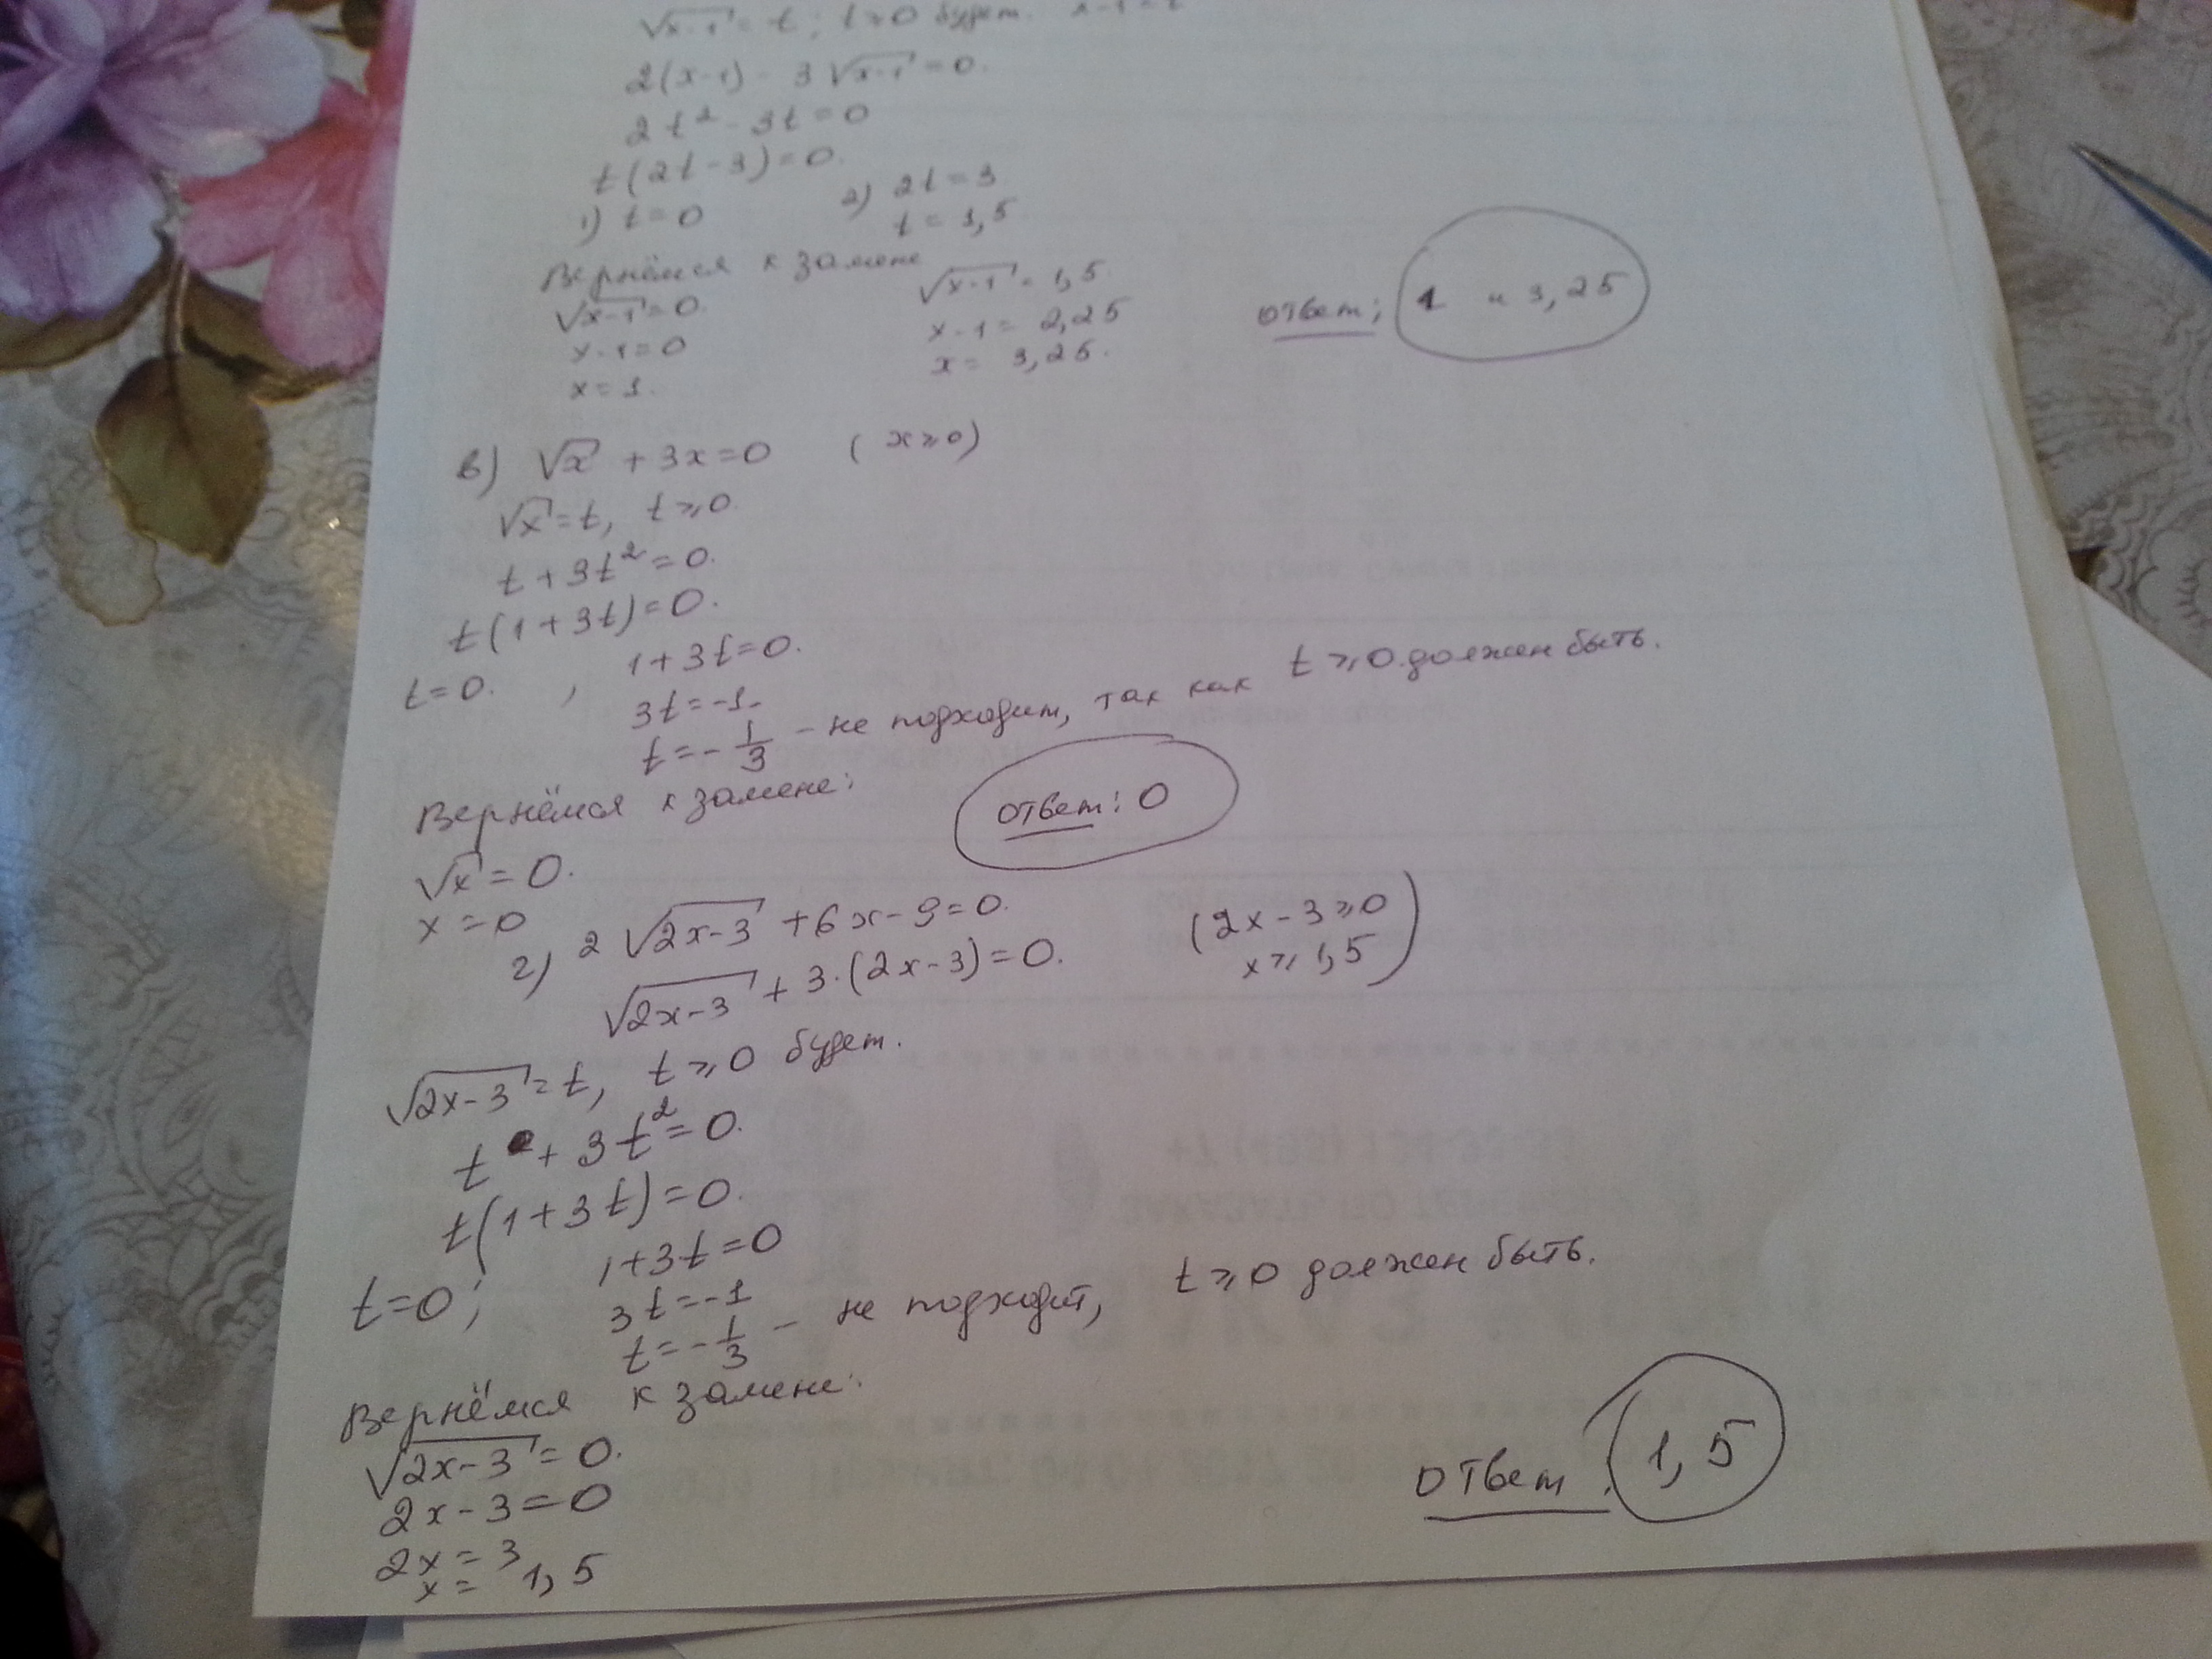 √x-1 = t; t ≥ 0 будет. x-1 = t
2(x-1) - 3√x-1 = 0.
2t² - 3t = 0
t(2t-3) = 0.
1) t = 0 2) 2t = 3
t = 1,5
Вернёмся к замене
√x-1 = 0. √x-1 = 1,5.
x-1 = 0 x-1 = 2,25
x = 1. x = 3,25.
ответ; 1 и 3,25
в) √x + 3x = 0 (x ≥ 0)
√x = t, t ≥ 0.
t + 3t² = 0.
t(1+3t) = 0.
t = 0. , 1+3t = 0.
3t = -1.
t = -1/3 - не подходит, так как t ≥ 0 должен быть.
Вернёмся к замене:
ответ: 0
√x = 0.
x = 0
г) 2√2x-3 + 6x - 9 = 0. (2x-3 ≥ 0
√2x-3 + 3·(2x-3) = 0. x ≥ 1,5)
√2x-3 = t, t ≥ 0 будет.
t + 3t² = 0.
t(1+3t) = 0.
t = 0; 1+3t = 0
3t = -1
t = -1/3 - не подходит, t ≥ 0 должен быть.
Вернёмся к замене:
√2x-3 = 0.
2x-3 = 0
2x = 3
x = 1,5
ответ: 1,5